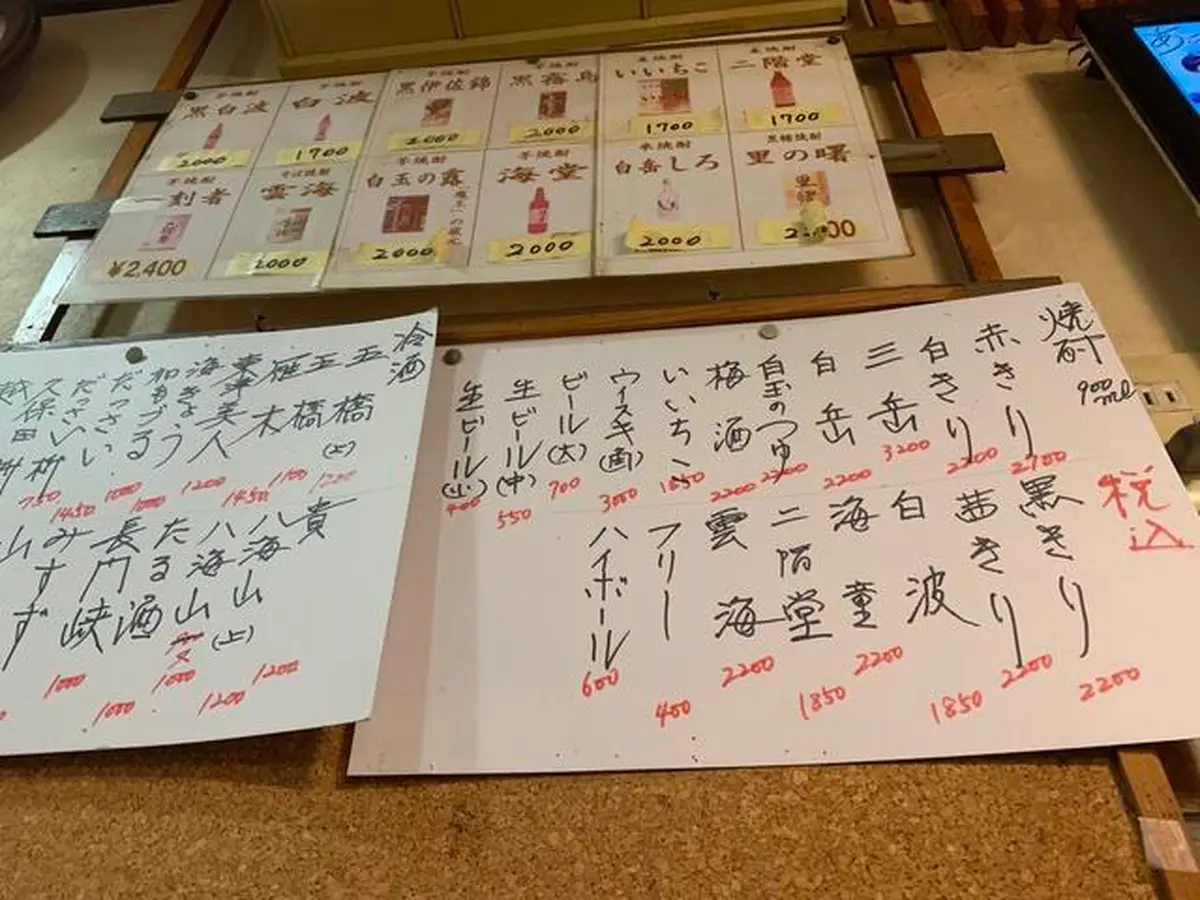 芋焼酎 黒白波 2000
芋焼酎 白波 1700
芋焼酎 黒伊佐錦 2000
芋焼酎 黒霧島 2000
麦焼酎 いいちこ 1700
麦焼酎 二階堂 1700
芋焼酎 一刻者 ¥2,400
そば焼酎 雲海 2000
芋焼酎 白玉の露 「魔王」の蔵元 2000
芋焼酎 海堂 2000
米焼酎 白岳しろ 2000
黒糖焼酎 里の曙
焼酎 900ml
税込
赤きり 2700
白きり 2200
三岳 3200
白岳 2200
白玉のつゆ 2200
梅酒 2200
いいちこ 1850
ウィスキ(角) 3000
ビール(大) 700
生ビール(中) 550
生ビール(小) 400
黒きり 2200
茜きり 2200
白波 1850
海童 2200
二陌堂 1850
雲海 2200
フリー 400
ハイボール 600
冷酒
五橋(上)
五橋 1100
雁木 1450
東洋美人 1200
海きょう 1000
和もづる 1000
だっさい 1450
久保田 750
貴 1200
八海山(上) 1200
八海山
たる酒 1000
長門峡 1000
みすず
山